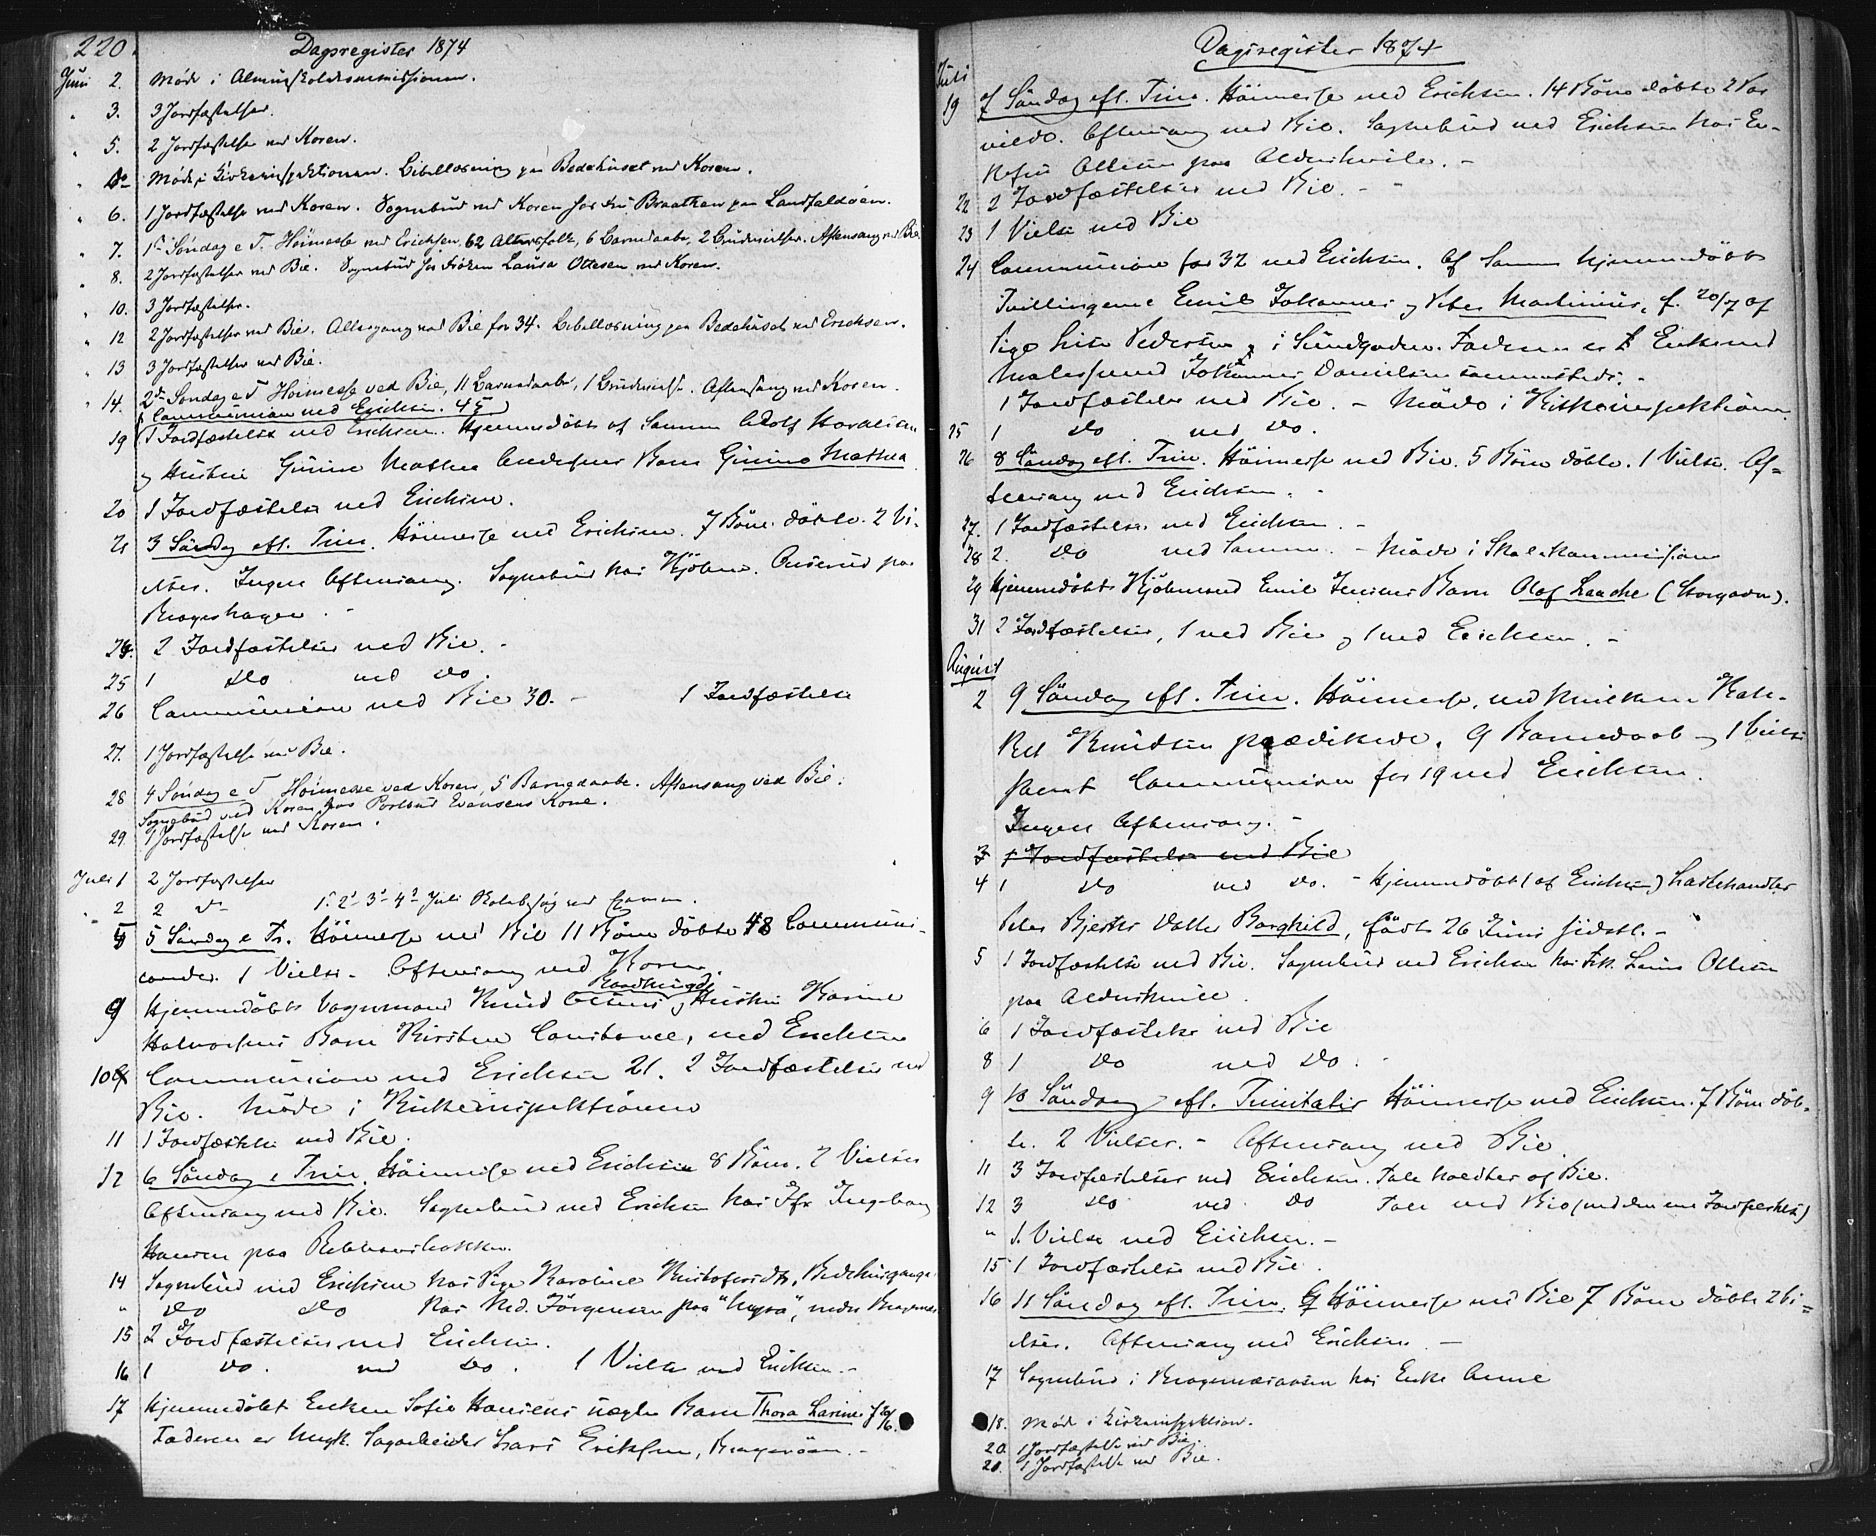 220.
Dagsregister 1874
Juni 2. Möde i Almueskolekommissionen.
" 3. 3 Jordfæstelser.
" 5. 2 Jordfæstelser ved Koren.
" Do Möde i Kirkeinspektionen. Bibellæsning paa Bedehuset ved Koren.
" 6. 1 Jordfæstelse ved Koren. Sognebud ved Koren hos Braathen paa Landfaldöen.
" 7. 1ste Söndag e T. Höimesse ved Erichsen, 62 Altersfolk, 6 Barnedaabe, 2 Brudevielser. Aftensang ved Bie
" 8. 2 Jordfæstelser ved Bie. Sognebud hos Fröken Laura Ottesen ved Koren.
" 10. 3 Jordfæstelser.
" 12 2 Jordfæstelser ved Bie. Altergang ved Bie for 34. Bibellæsning paa Bedehuset ved Erichsen.
" 13 3 Jordfæstelser ved Bie.
" 14. 2den Söndag e T Höimesse ved Bie, 11 Barnedaabe, 1 Brudevielse. Aftensang ved Koren.
Communion ved Erichsen. 45
19 1 Jordfæstelse ved Erichsen. Hjemmedöbt af Samme Adolf
og Hustru Gunine Mathea Barn Gunine Mathea
20 1 Jordfæstelse ved Erichsen.
21 3 Söndag eft. Trin. Höimesse ved Erichsen. 7 Börn döbte. 2 Vi-
elser. Ingen Aftensang. Sognebud hos Kjöbm. paa
Brageshagen. -
24. 2 Jordfæstelser ved Bie. -
25 1 do ved do.
26 Communion ved Bie 30. - 1 Jordfæstelse
27. 1 Jordfæstelse ved Bie.
28 4 Söndag e T Höimesse ved Koren, 5 Barnedaabe. Aftensang ved Bie.
Sognebud ved Koren hos Postbud Evensens Kone.
29. 1 Jordfæstelse ved Koren.
Juli 1 2 Jordfæstelser
" 2 2 do 1ste 2den 3die 4de Juli
5 5 Söndag e Tr. Höimesse ved Bie 11 Börn döbte 48 Communi-
canter. 1 Vielse. - Aftensang ved Koren.
9 Hjemmedöbt Vognmand Knud Olsens og Hustru Karine
Halvorsens Barn Kirstine Constance, ved Erichsen
10 Communion ved Erichsen 21. 2 Jordfæstelser ved
Bie. Möde i Kirkeinspektionen
11 1 Jordfæstelse ved Bie.
12 6 Söndag e Trin. Höimesse ved Erichsen 8 Börn. 2 Vielser
Aftensang ved Bie. Sognebud ved Erichsen hos Jfr Ingeborg
Hansen paa
14 Sognebud ved Erichsen hos Pige Karoline Kristofersdtr,
" do do hos Md. Jörgensen paa "Nyra",
15 2 Jordfæstelser ved Erichsen.
16 1 do. ved do. 1 Vielse ved Erichsen. -
17 Hjemmedöbt Enken Sofie Hansens uægte Barn Thora Larine, f
Faderen er Ungk. Sagarbeider Lars Eriksen, Brageröen. -
Dagsregister 1874
Juli
19 7 Söndag eft. Trin. Höimesse ved Erichsen. 14 Börn döbte 2 Par
viede. Aftensang ved Bie. Sognebud ved Erichsen hos En-
kefru Ottesen paa Aldershvile. -
22 2 Jordfæstelser ved Bie. -
23 1 Vielse ved Bie
24 Communion for 32 ved Erichsen. Af Samme hjemmedöbt
Tvillingerne Emil Johannes og Peter Martinius, f. 20/7 af
Pige Lise Pedersen, i Sundgaden. Faderen er Enkemand
Malersvend Johannes Danielsen sammesteds. -
1 Jordfæstelse ved Bie. - Möde i Kirkeinspektionen
25 1 do ved do.
26 8 Söndag eft. Trin. Höimesse ved Bie. 5 Börn döbte. 1 Vielse. Af-
tensang ved Erichsen. -
27. 1 Jordfæstelse ved Erichsen. -
28 2. do ved Samme. - Möde i Skolekommissionen
29 Hjemmedöbt Kjöbmand Emil Jensens Barn Olaf Laache (Storgaden).
31 2 Jordfæstelser, 1 ved Bie og 1 ved Erichsen. -
August
2 9 Söndag eft. Trin. Höimesse, ved hvilken Kate-
ket Knudsen prædikede. 9 Barnedaab og 1 Vielse
samt Communion for 19 ved Erichsen.
Ingen Aftensang. -
3 1 Jordfæstelse ved Bie
4 1 do ved do. - Hjemmedöbt (af Erichsen) Lasthandler
Peter Datter Borghild, födt 26 Juni sidstl. -
5 1 Jordfæstelse ved Bie. Sognebud ved Erichsen hos Frk. Laura Ottesen
paa Aldershvile.
6 1 Jordfæstelse ved Bie
8 1 do ved do. -
9 10 Söndag eft. Trinitatis Höimesse ved Erichsen. 7 Börn döb-
te. 2 Vielser. - Aftensang ved Bie.
11 3 Jordfæstelser ved Erichsen. Tale holdtes af Bie.
12 3 do ved do Tale ved Bie (ved den ene Jordfæstelse)
" 1. Vielse ved Erichsen. -
15 1 Jordfæstelse ved Bie.
16 11 Söndag eft. Trin. Höimesse ved Bie 7 Börn döbte 2 Vi-
elser. Aftensang ved Erichsen -
17 Sognebud i Bragernæsaasen hos Enke Anne
18. Möde i Kirkeinspektion.
20. 1 Jordfæstelse ved Bie.
21. 1 Jordfæstelse ved Bie.